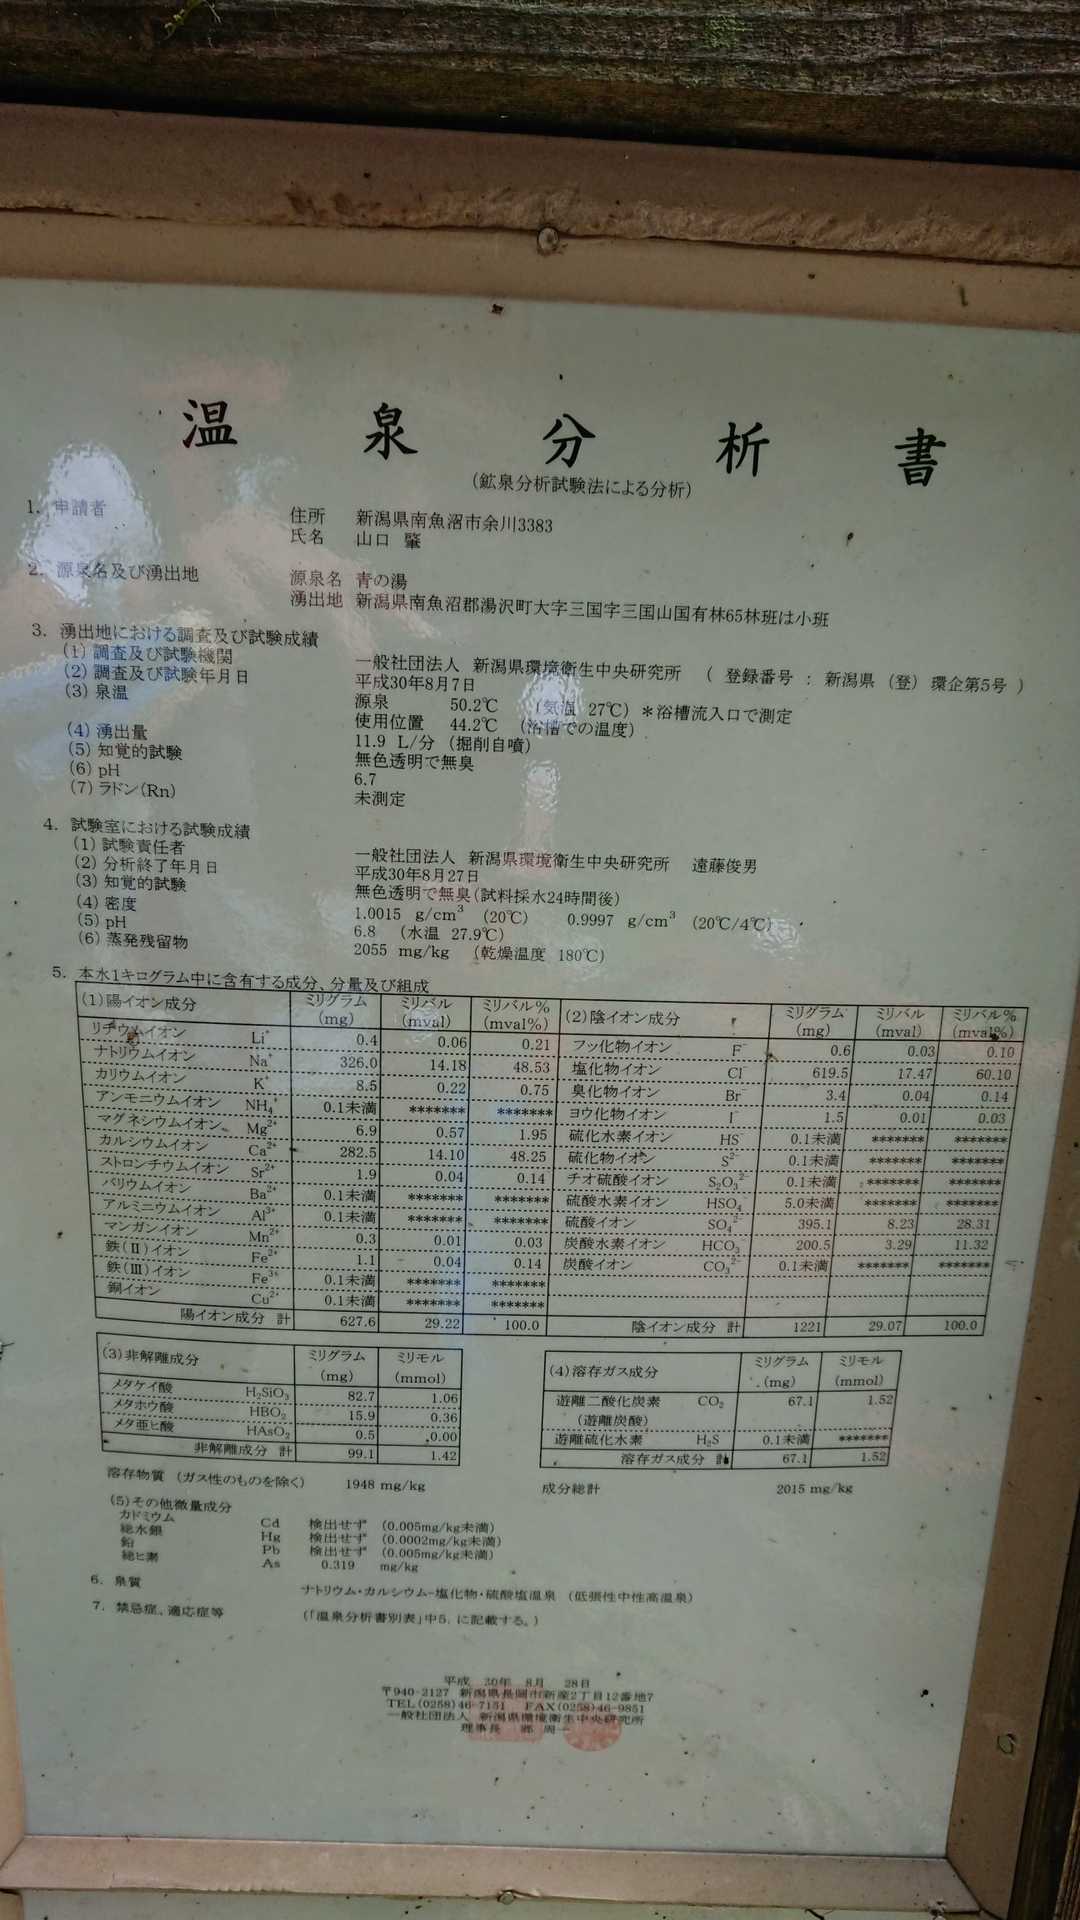 温泉分析書
(鉱泉分析試験法による分析)
1. 申請者 住所 新潟県南魚沼市余川3383
氏名 山口 肇
2. 源泉名及び湧出地 源泉名 青の湯
湧出地 新潟県南魚沼郡湯沢町大字三国字三国山国有林65林班は小班
3. 湧出地における調査及び試験成績
(1) 調査及び試験機関 一般社団法人 新潟県環境衛生中央研究所 ( 登録番号 : 新潟県 (登) 環企第5号 )
(2) 調査及び試験年月日 平成30年8月7日
(3) 泉温 源泉 50.2℃ (気温 27℃) *浴槽流入口で測定
使用位置 44.2℃ (浴槽での温度)
(4) 湧出量 11.9 L/分 (掘削自噴)
(5) 知覚的試験 無色透明で無臭
(6) pH 6.7
(7) ラドン(Rn) 未測定
4. 試験室における試験成績
(1) 試験責任者 一般社団法人 新潟県環境衛生中央研究所 遠藤俊男
(2) 分析終了年月日 平成30年8月27日
(3) 知覚的試験 無色透明で無臭(試料採水24時間後)
(4) 密度 1.0015 g/cm³ (20℃) 0.9997 g/cm³ (20℃/4℃)
(5) pH 6.8 (水温 27.9℃)
(6) 蒸発残留物 2055 mg/kg (乾燥温度 180℃)
5. 本水1キログラム中に含有する成分、分量及び組成
(1)陽イオン成分 ミリグラム (mg) ミリバル (mval) ミリバル% (mval%)
リチウムイオン Li⁺ 0.4 0.06 0.21
ナトリウムイオン Na⁺ 326.0 14.18 48.53
カリウムイオン K⁺ 8.5 0.22 0.75
アンモニウムイオン NH₄⁺ 0.1未満 ******* *******
マグネシウムイオン Mg²⁺ 6.9 0.57 1.95
カルシウムイオン Ca²⁺ 282.5 14.10 48.25
ストロンチウムイオン Sr²⁺ 1.9 0.04 0.14
バリウムイオン Ba²⁺ 0.1未満 ******* *******
アルミニウムイオン Al³⁺ 0.1未満 ******* *******
マンガンイオン Mn²⁺ 0.3 0.01 0.03
鉄(Ⅱ)イオン Fe²⁺ 1.1 0.04 0.14
鉄(Ⅲ)イオン Fe³⁺ 0.1未満 ******* *******
銅イオン Cu²⁺ 0.1未満 ******* *******
陽イオン成分 計 627.6 29.22 100.0
(2)陰イオン成分 ミリグラム (mg) ミリバル (mval) ミリバル% (mval%)
フッ化物イオン F⁻ 0.6 0.03 0.10
塩化物イオン Cl⁻ 619.5 17.47 60.10
臭化物イオン Br⁻ 3.4 0.04 0.14
ヨウ化物イオン I⁻ 1.5 0.01 0.03
硫化水素イオン HS⁻ 0.1未満 ******* *******
硫化物イオン S²⁻ 0.1未満 ******* *******
チオ硫酸イオン S₂O₃²⁻ 0.1未満 ******* *******
硫酸水素イオン HSO₄⁻ 5.0未満 ******* *******
硫酸イオン SO₄²⁻ 395.1 8.23 28.31
炭酸水素イオン HCO₃⁻ 200.5 3.29 11.32
炭酸イオン CO₃²⁻ 0.1未満 ******* *******
陰イオン成分 計 1221 29.07 100.0
(3)非解離成分 ミリグラム (mg) ミリモル (mmol)
メタケイ酸 H₂SiO₃ 82.7 1.06
メタホウ酸 HBO₂ 15.9 0.36
メタ亜ヒ酸 HAsO₂ 0.5 0.00
非解離成分 計 99.1 1.42
(4)溶存ガス成分 ミリグラム (mg) ミリモル (mmol)
遊離二酸化炭素 CO₂ 67.1 1.52
(遊離炭酸)
遊離硫化水素 H₂S 0.1未満 *******
溶存ガス成分 計 67.1 1.52
溶存物質 (ガス性のものを除く) 1948 mg/kg 成分総計 2015 mg/kg
(5)その他微量成分
カドミウム Cd 検出せず (0.005mg/kg未満)
総水銀 Hg 検出せず (0.0002mg/kg未満)
鉛 Pb 検出せず (0.005mg/kg未満)
総ヒ素 As 0.319 mg/kg
6. 泉質 ナトリウム・カルシウム-塩化物・硫酸塩温泉 (低張性中性高温泉)
7. 禁忌症、適応症等 (「温泉分析書別表」中5. に記載する。)
平成 30年 8月 28日
〒940-2127 新潟県長岡市新産2丁目12番地7
TEL(0258)46-7151 FAX(0258)46-9851
一般社団法人 新潟県環境衛生中央研究所
理事長 周一